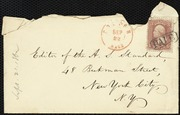 Editor of the A. S. Standard,
48 Beekman Street,
New York City,
N.Y.
SEP